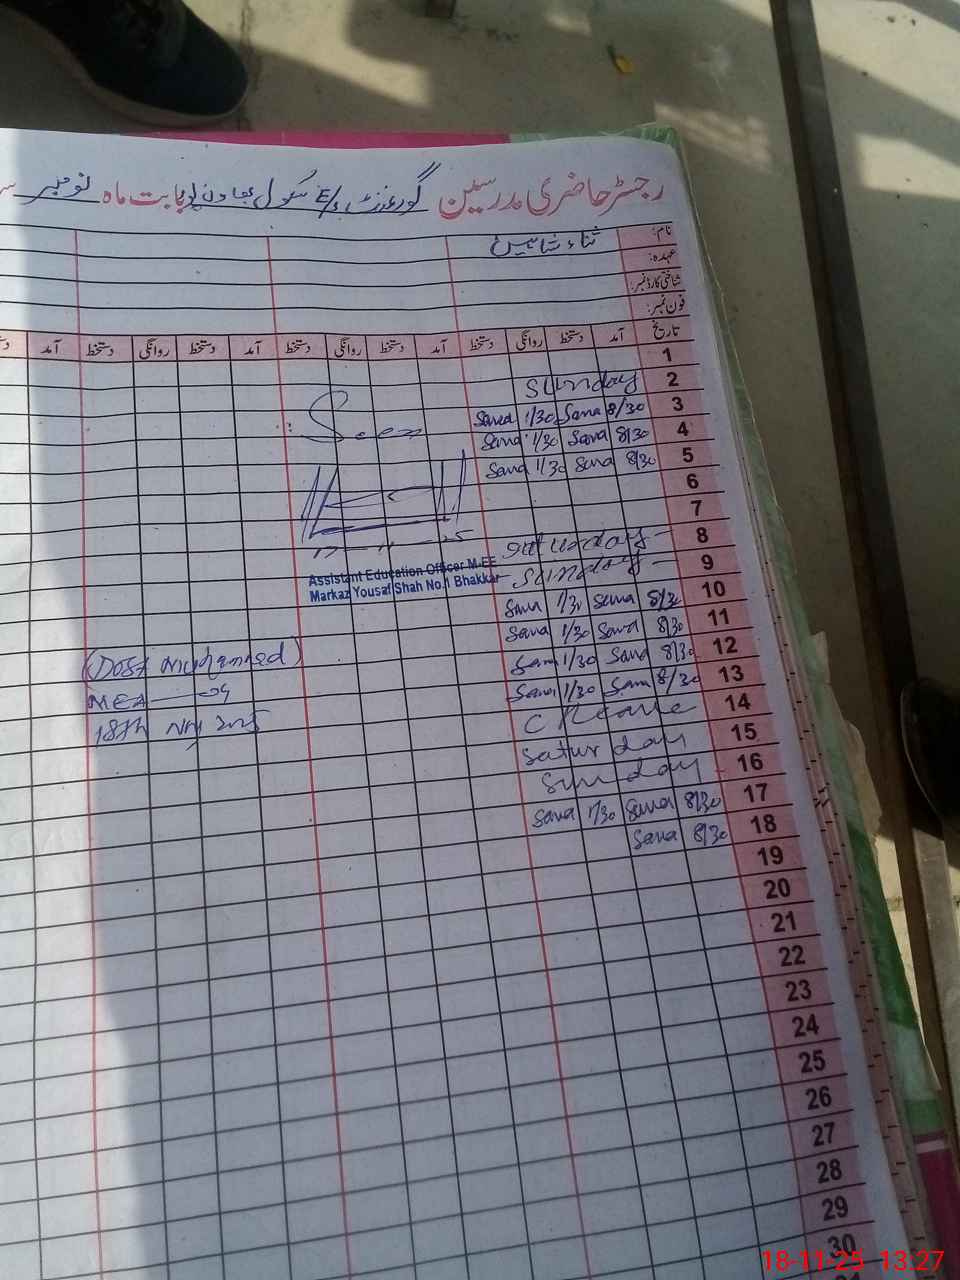 رجسٹر حاضری مدرسین گورنمنٹ E/S سکول بابت ماہ نومبر
نام: ثناء شاہین
عہدہ:
شناختی کارڈ نمبر:
فون نمبر:
تاریخ آمد دستخط روانگی دستخط آمد دستخط روانگی دستخط آمد دستخط روانگی دستخط آمد
1
2 Sunday
3 8/30 Sana 1/30 Sana
4 8/30 Sana 1/30 Sana
5 8/30 Sana 1/30 Sana
6
7
8 Saturday
9 Sunday
10 8/30 Sana 1/30 Sana
11 8/30 Sana 1/30 Sana
12 8/30 Sana 1/30 Sana
13 8/30 Sana 1/30 Sana
14 C leave
15 Saturday
16 Sunday
17 8/30 Sana 1/30 Sana
18 8/30 Sana
19
20
21
22
23
24
25
26
27
28
29
30
Seen
17-11-25
Assistant Education Officer M.EE
Markaz Yousaf Shah No.1 Bhakkar
(Dost Muhammad)
MEA-09
18th Nov 2025
18-11-25 13:27